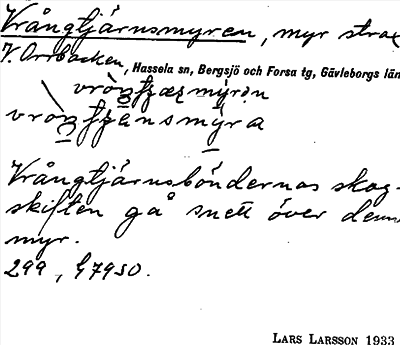 Vrångtjärnsmyren, myr strax
V. Orrbacken, Hassela sn, Bergsjö och Forsa tg, Gävleborgs län
Vrångtjärnsböndernas skog-
skiften gå snett över denna
myr.
299, G7950.
LARS LARSSON 1933